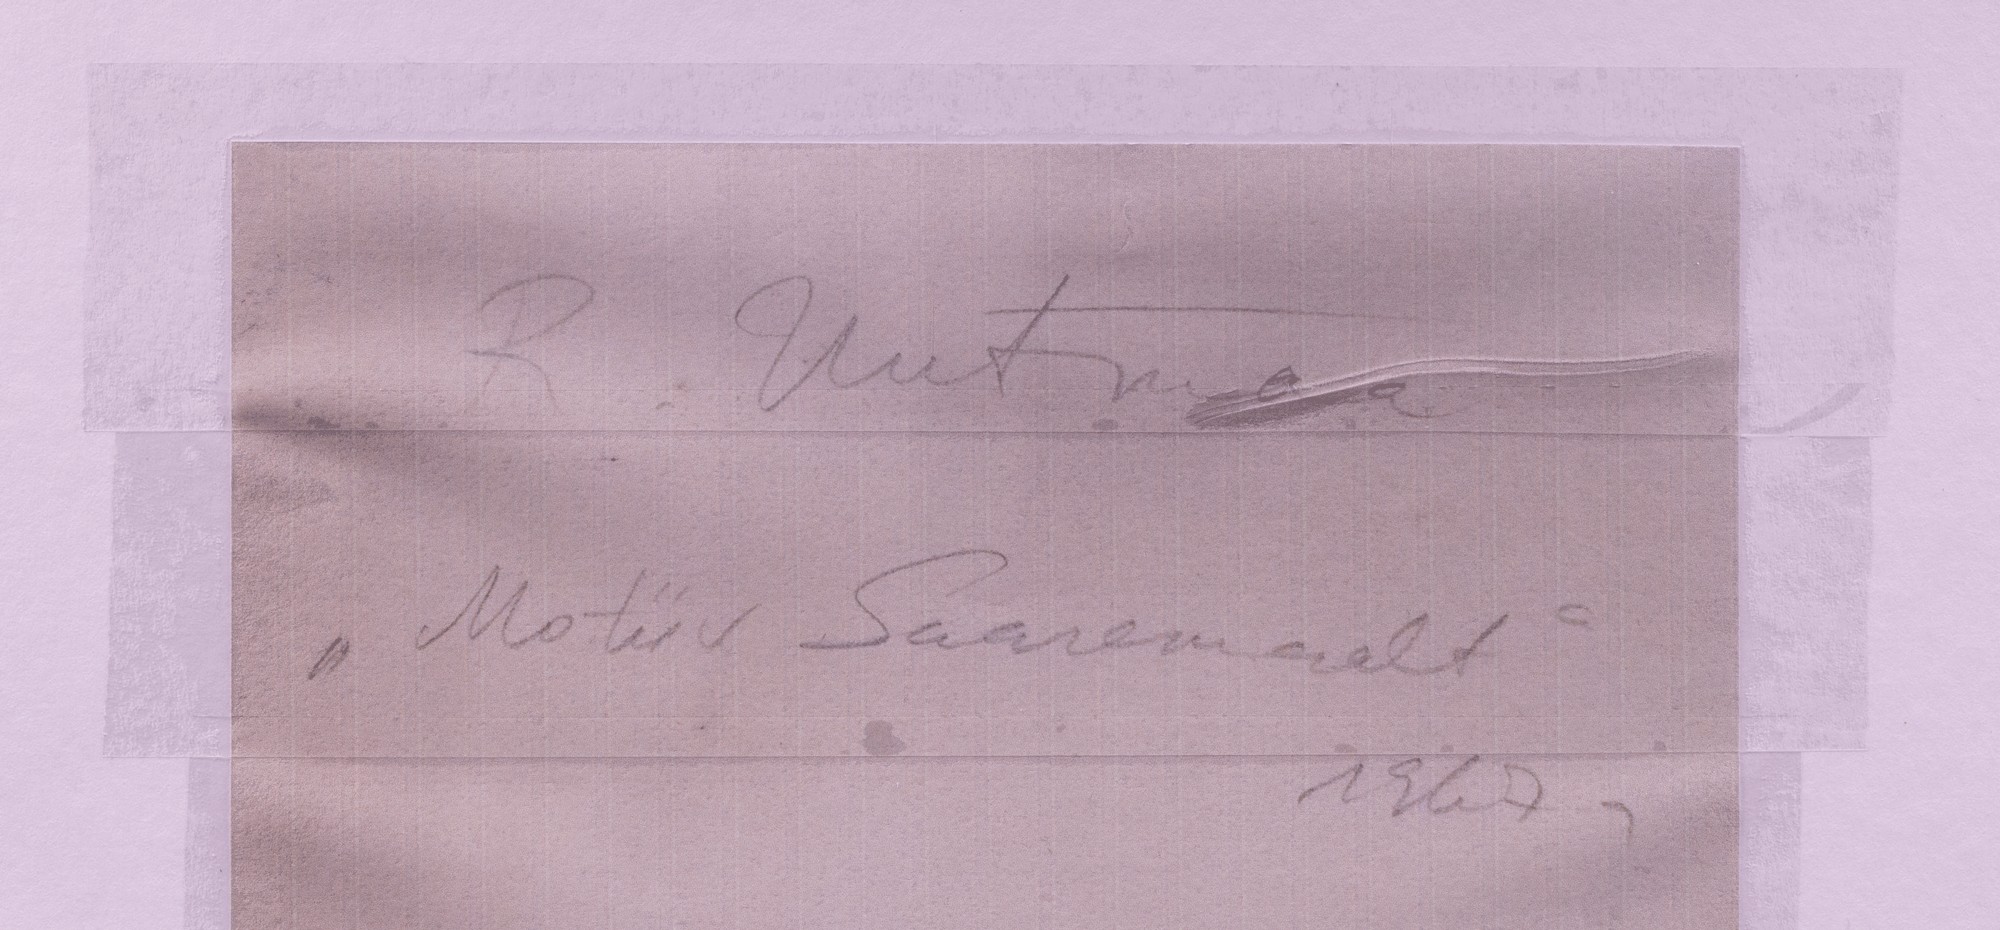 R. Uutmaa
„Motiiv Saaremaalt“
1967